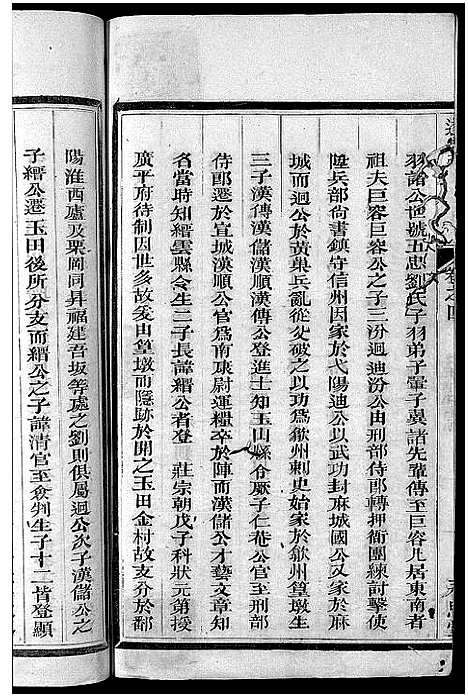 羽諸公世號五忠劉氏子羽弟子翬子翼諸先輩傳至巨容凡居東南者
祖夫巨容巨容公之子三汾迴迪汾公由刑部侍郎轉押衙團練討擊使
陞兵部尚書鎮守信州因家於弋陽迪公以武功封麻城國公又家於麻
城而迴公於黃巢兵亂從父破之以功爲歙州刺史始家於歙州篁墩生
三子漢傳漢儲漢順漢傳公登進士知玉山縣令厥子仁菴公官至刑部
侍郎遷於宣城漢順公官爲南康尉運糧卒於陣而漢儲公才藝文章知
名當時知縉雲縣令生二子長諱縉公者登 莊宗朝戊子科狀元第授
廣平府待制因世多故爰由篁墩而隱跡於開之玉田金村故支分於鄱
陽淮西廬及栗岡同昇福建吾坂等處之劉則俱屬迴公次子漢儲公之
子縉公遷玉田後所分支而縉公之子諱清官至僉判生子十二皆登顯